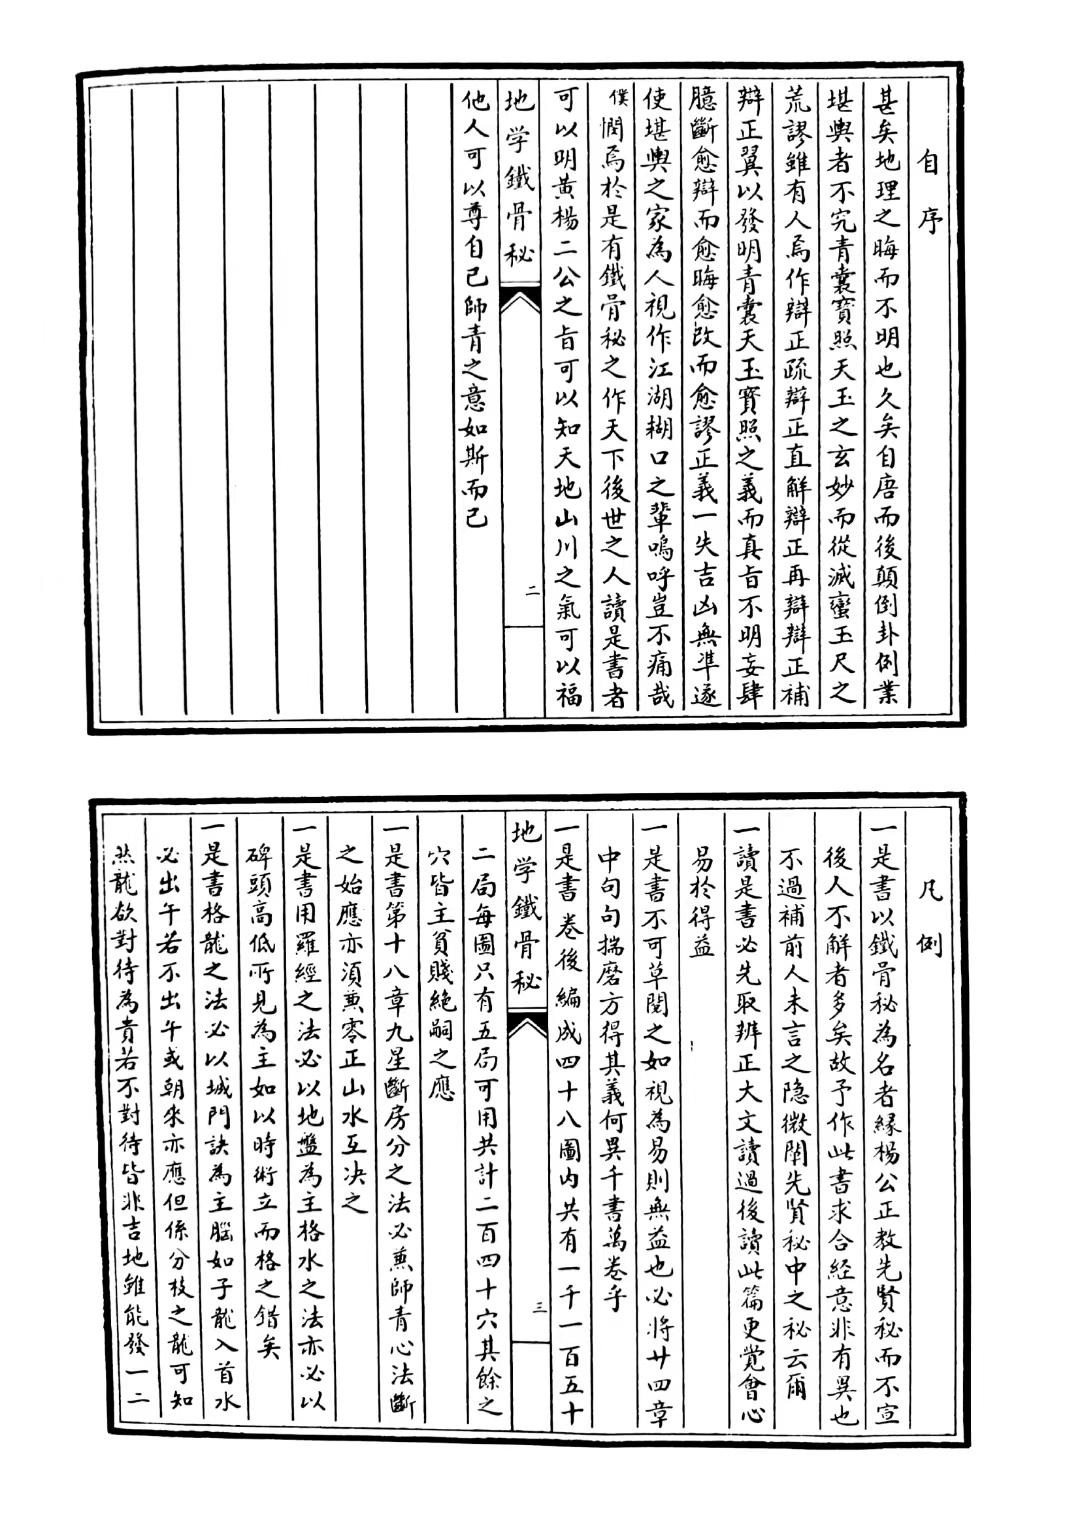 自序
甚矣地理之晦而不明也久矣自唐而後顛倒卦例業
堪輿者不究青囊寶照天玉之玄妙而從滅蠻玉尺之
荒謬雖有人焉作辯正疏辯正直解辯正再辯辯正補
辯正翼以發明青囊天玉寶照之義而真旨不明妄肆
臆斷愈辯而愈晦愈改而愈謬正義一失吉凶無準遂
使堪輿之家為人視作江湖糊口之輩嗚呼豈不痛哉
僕憫焉於是有鐵骨秘之作天下後世之人讀是書者
可以明黃楊二公之旨可以知天地山川之氣可以福
地学鐵骨秘
二
他人可以尊自己師青之意如斯而已
凡例
一是書以鐵骨秘為名者緣楊公正教先賢秘而不宣
後人不解者多矣故予作此書求合經意非有異也
不過補前人未言之隐微闡先賢秘中之秘云爾
一讀是書必先取辨正大文讀過後讀此篇更覺會心
易於得益
一是書不可草閱之如視為易則無益也必將廿四章
中句句揣磨方得其義何異千書萬卷乎
一是書卷後編成四十八圖内共有一千一百五十
地学鐵骨秘
三
二局每圖只有五局可用共計二百四十穴其餘之
穴皆主貧賤絶嗣之應
一是書第十八章九星斷房分之法必兼師青心法斷
之始應亦須兼零正山水互决之
一是書用羅經之法必以地盤為主格水之法亦必以
碑頭高低所見為主如以時術立而格之錯矣
一是書格龍之法必以城門訣為主腦如子龍入首水
必出午若不出午或朝來亦應但係分枝之龍可知
然龍欲對待為貴若不對待皆非吉地雖能發一二